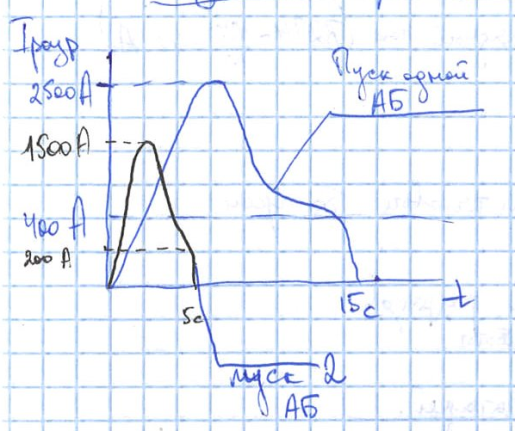 Iразр
2500А
Пуск одной
АБ
1500А
400 А
200 А
5с
15с
t
пуск 2
АБ